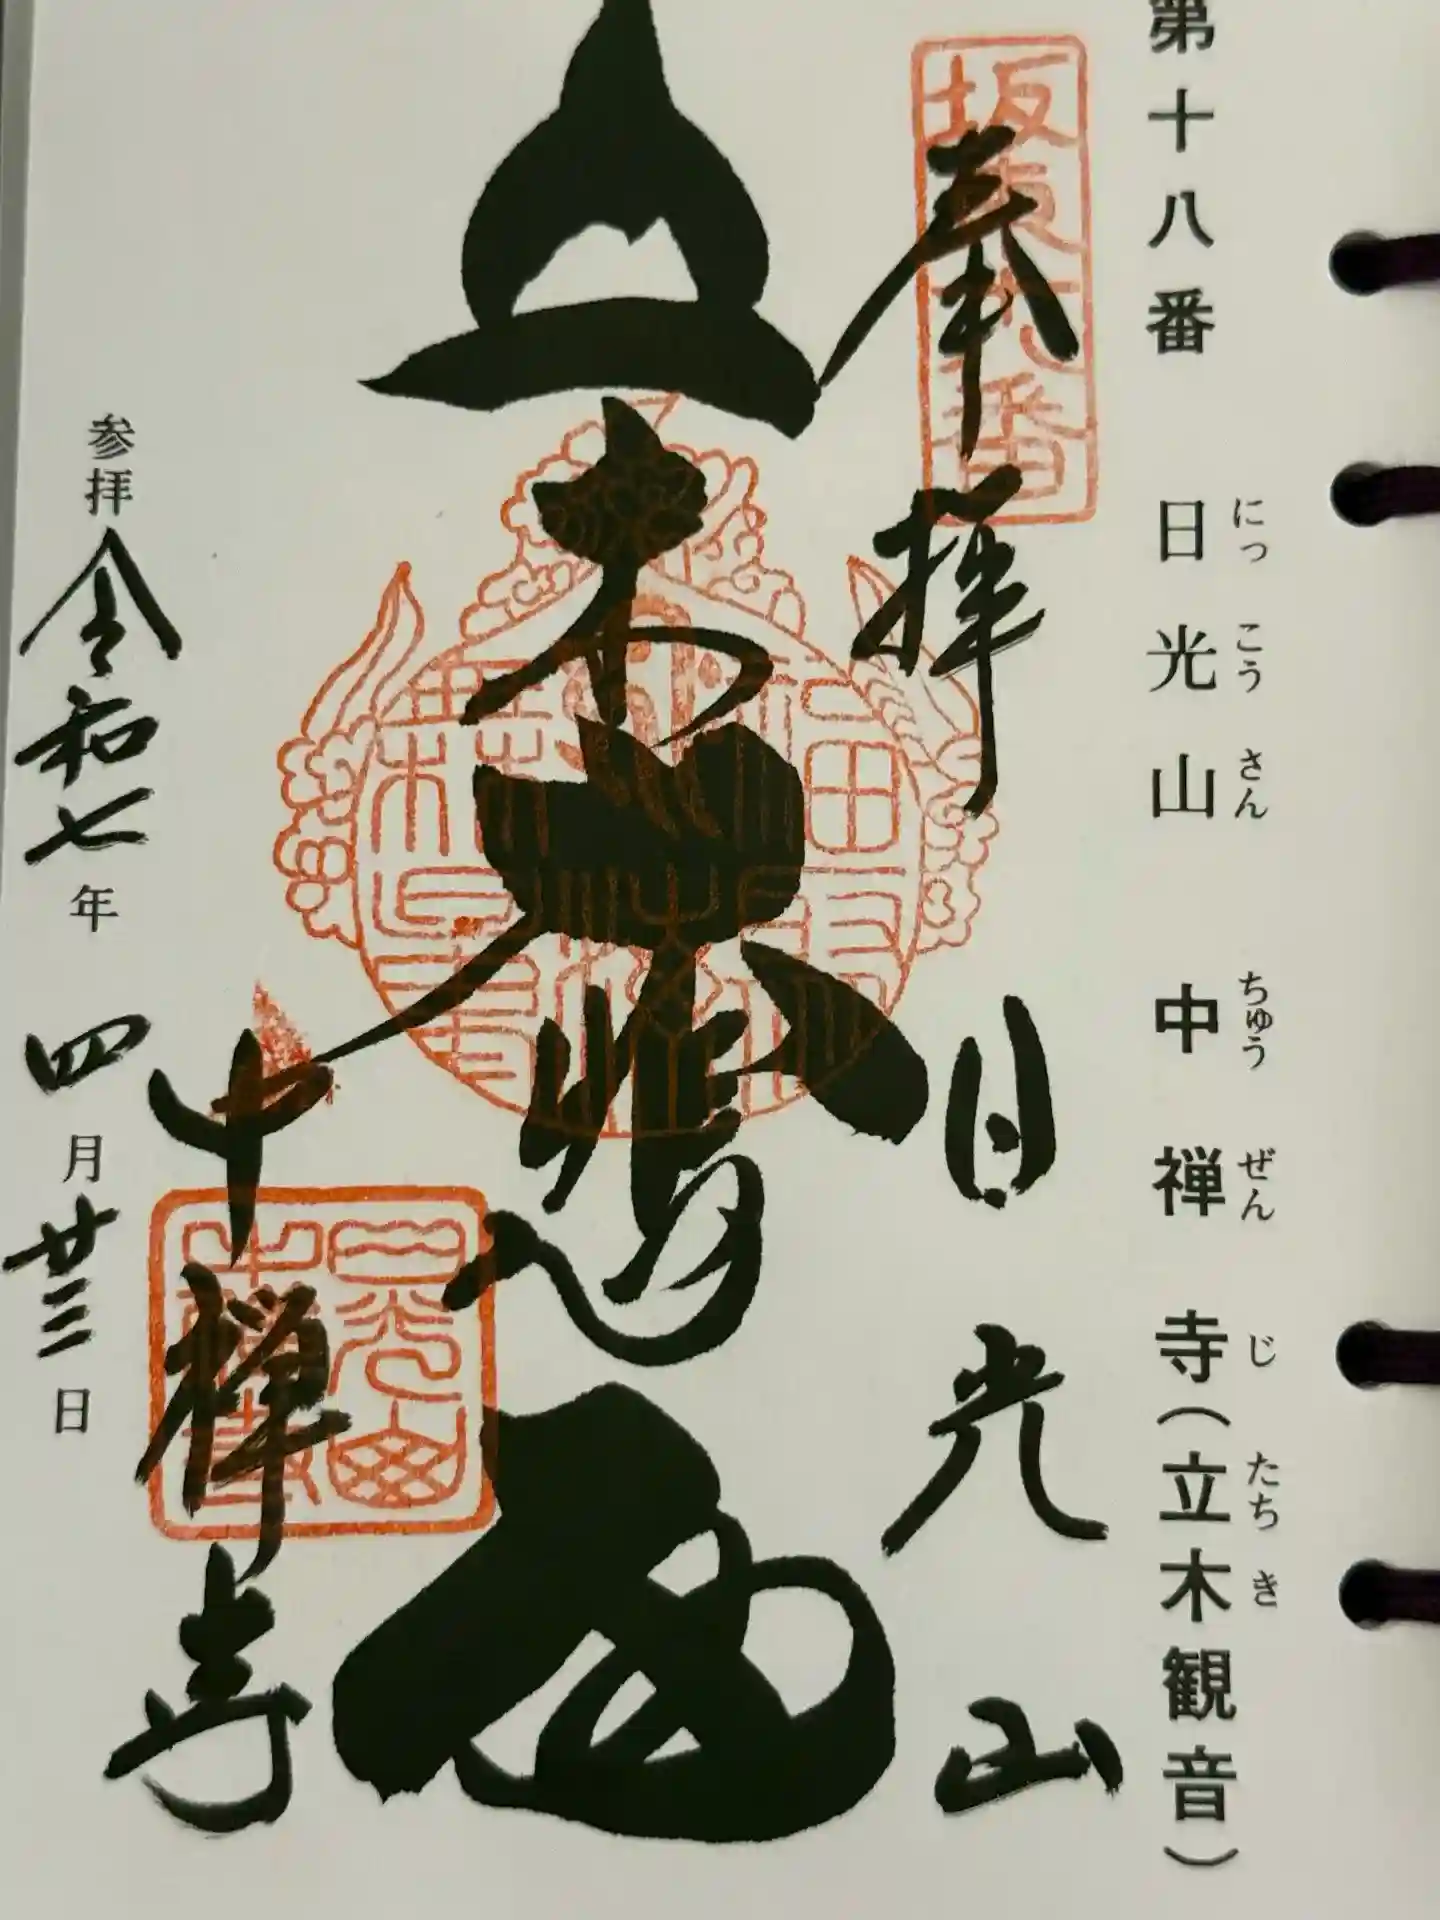 第十八番 日光山 中禅寺(立木観音)
にっこうさん ちゅうぜんじ たちき
坂東十八番
奉拝 日光山
立木大悲殿
中禅寺
参拝 令和七年 四月廿三日